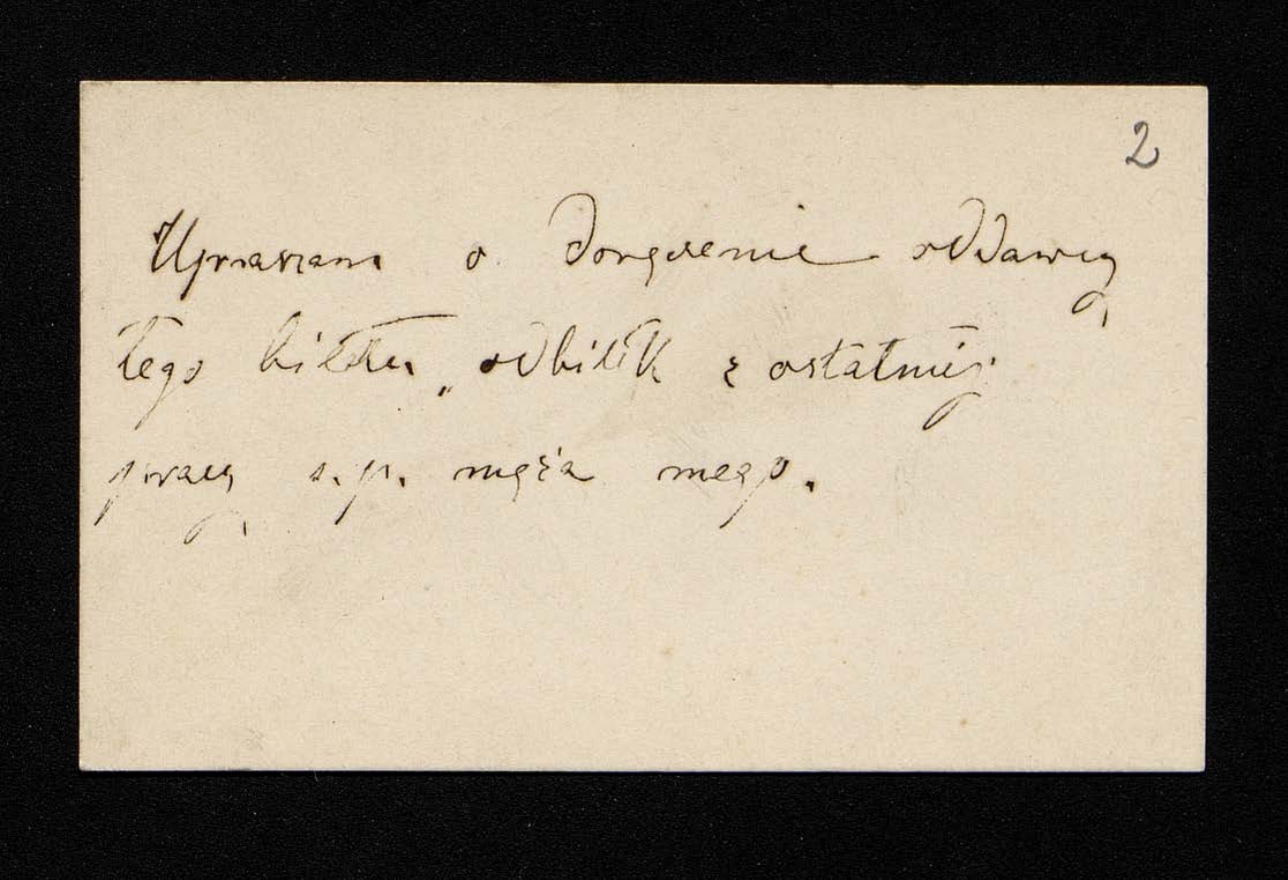 2
Upraszam o doręczenie oddawcy
tego biletu, odbitek z ostatniéj
pracy s.p. męża mego.